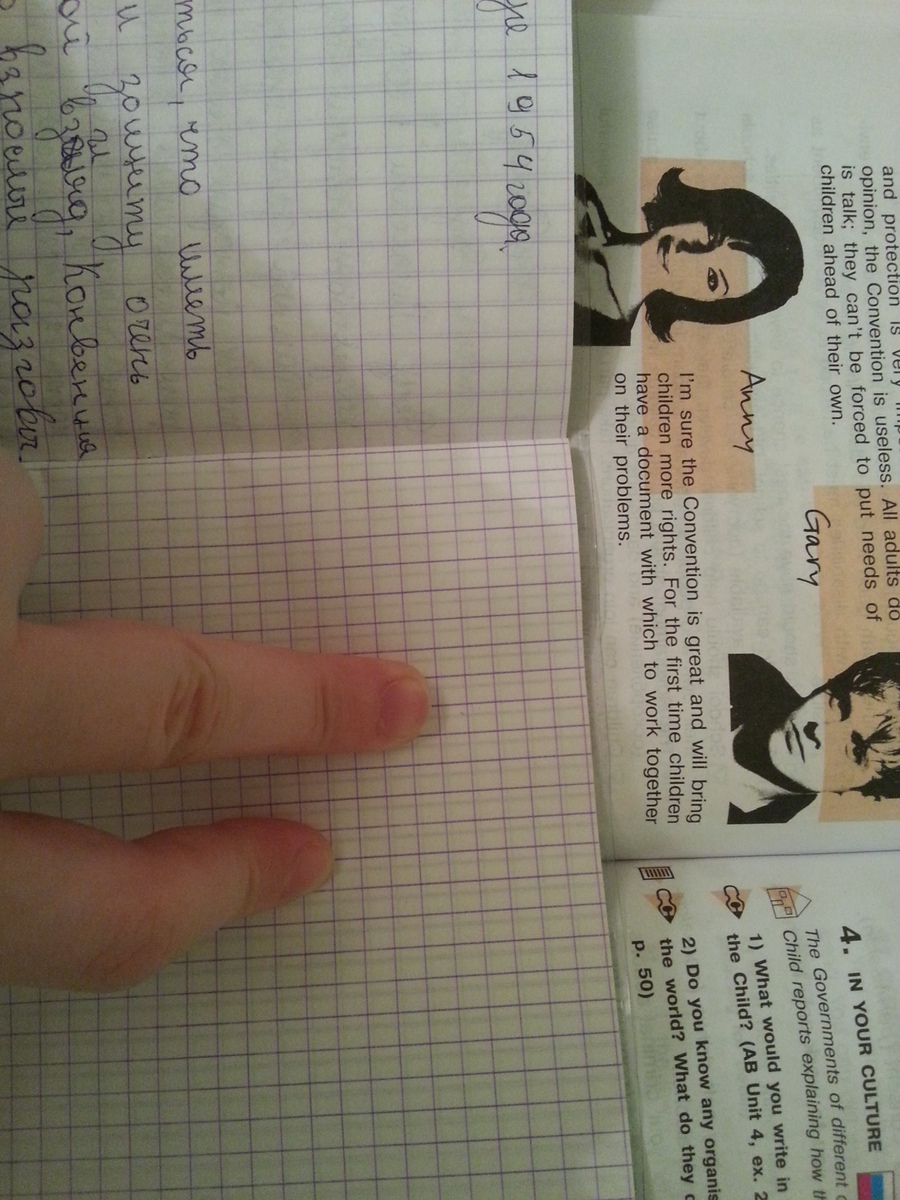 and protection is very
opinion, the Convention is useless. All adults do
is talk; they can't be forced to put needs of
children ahead of their own.
Gary
Anny
I'm sure the Convention is great and will bring
children more rights. For the first time children
have a document with which to work together
on their problems.
4. IN YOUR CULTURE
The Governments of different
Child reports explaining how
1) What would you write in
the Child? (AB Unit 4, ex. 2
2) Do you know any
the world? What do they
p. 50)
1954 года,
что иметь
и защиту очень
взгляд, Конвенция
взрослые